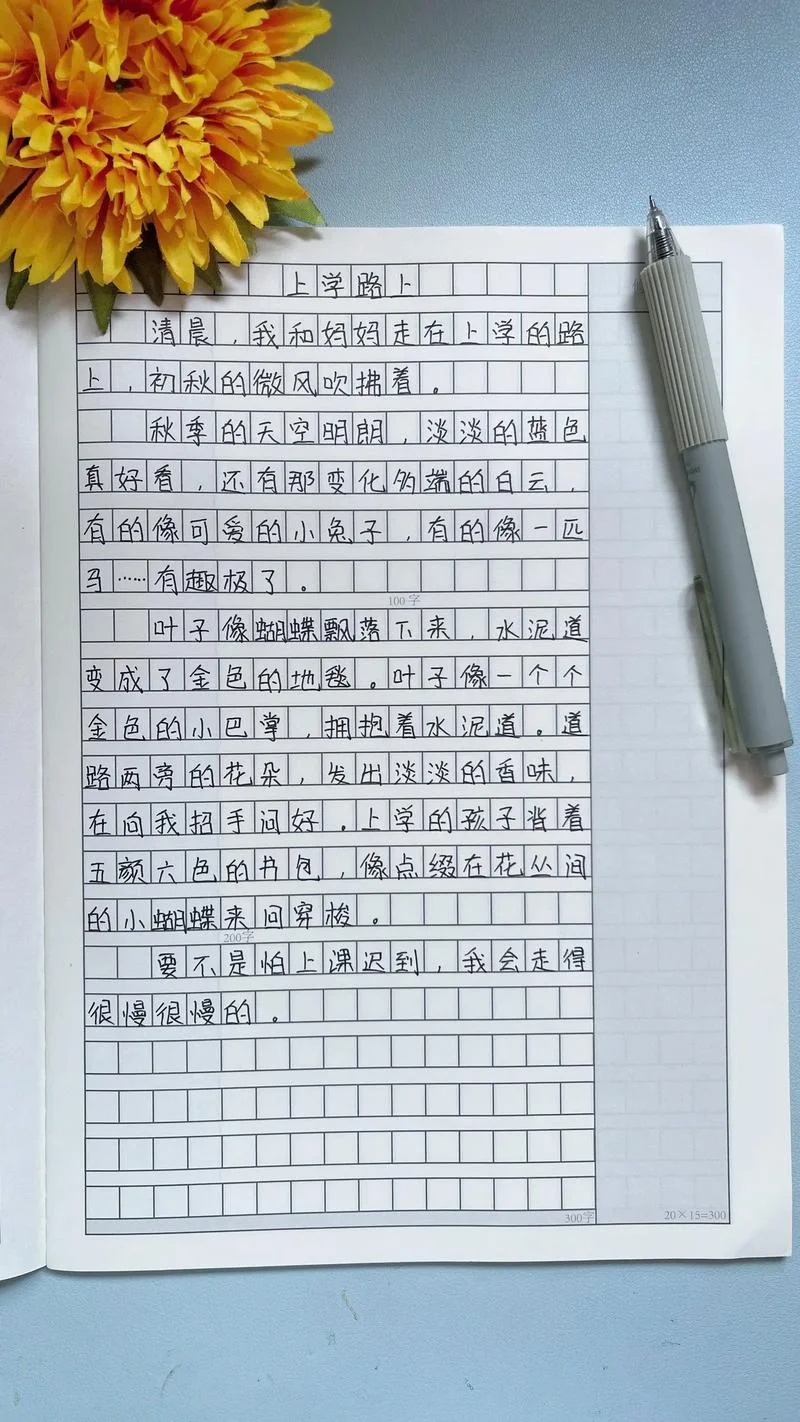 上学路上
清晨，我和妈妈走在上学的路
上，初秋的微风吹拂着。
秋季的天空明朗，淡淡的蓝色
真好看，还有那变化多端的白云，
有的像可爱的小兔子，有的像一匹
马……有趣极了。
100字
叶子像蝴蝶飘落下来，水泥道
变成了金色的地毯。叶子像一个个
金色的小巴掌，拥抱着水泥道。道
路两旁的花朵，发出淡淡的香味，
在向我招手问好。上学的孩子背着
五颜六色的书包，像点缀在花丛间
的小蝴蝶来回穿梭。
200字
要不是怕上课迟到，我会走得
很慢很慢的。
300字
20×15=300